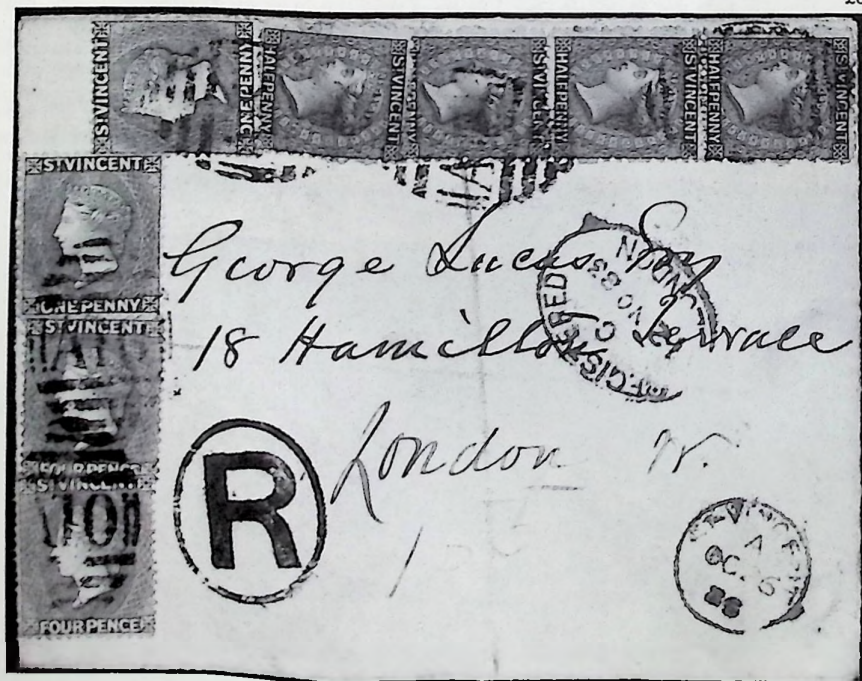 ST VINCENT ONE PENNY
HALFPENNY ST VINCENT
HALFPENNY ST VINCENT
HALFPENNY ST VINCENT
HALFPENNY ST VINCENT
ST VINCENT
ONE PENNY
ST VINCENT
FOUR PENCE
ST VINCENT
FOUR PENCE
A10
George Lucas Esq
18 Hamilton Terrace
London W.
REGISTERED LONDON
R
ST VINCENT
A
OC 6